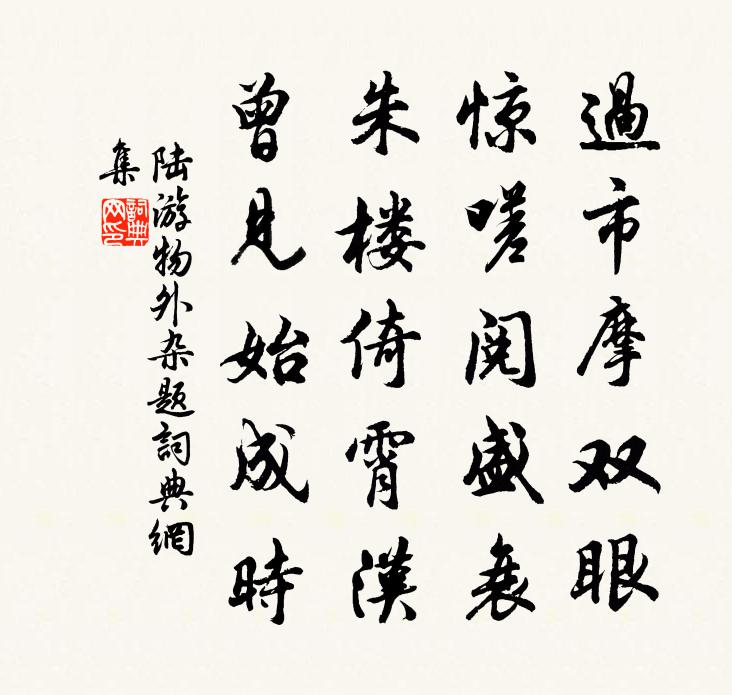 過市摩双眼
惊嗟阅盛衰
朱楼倚霄漢
曾见始成時
陆游物外杂题詞典網
集
詞典
网印